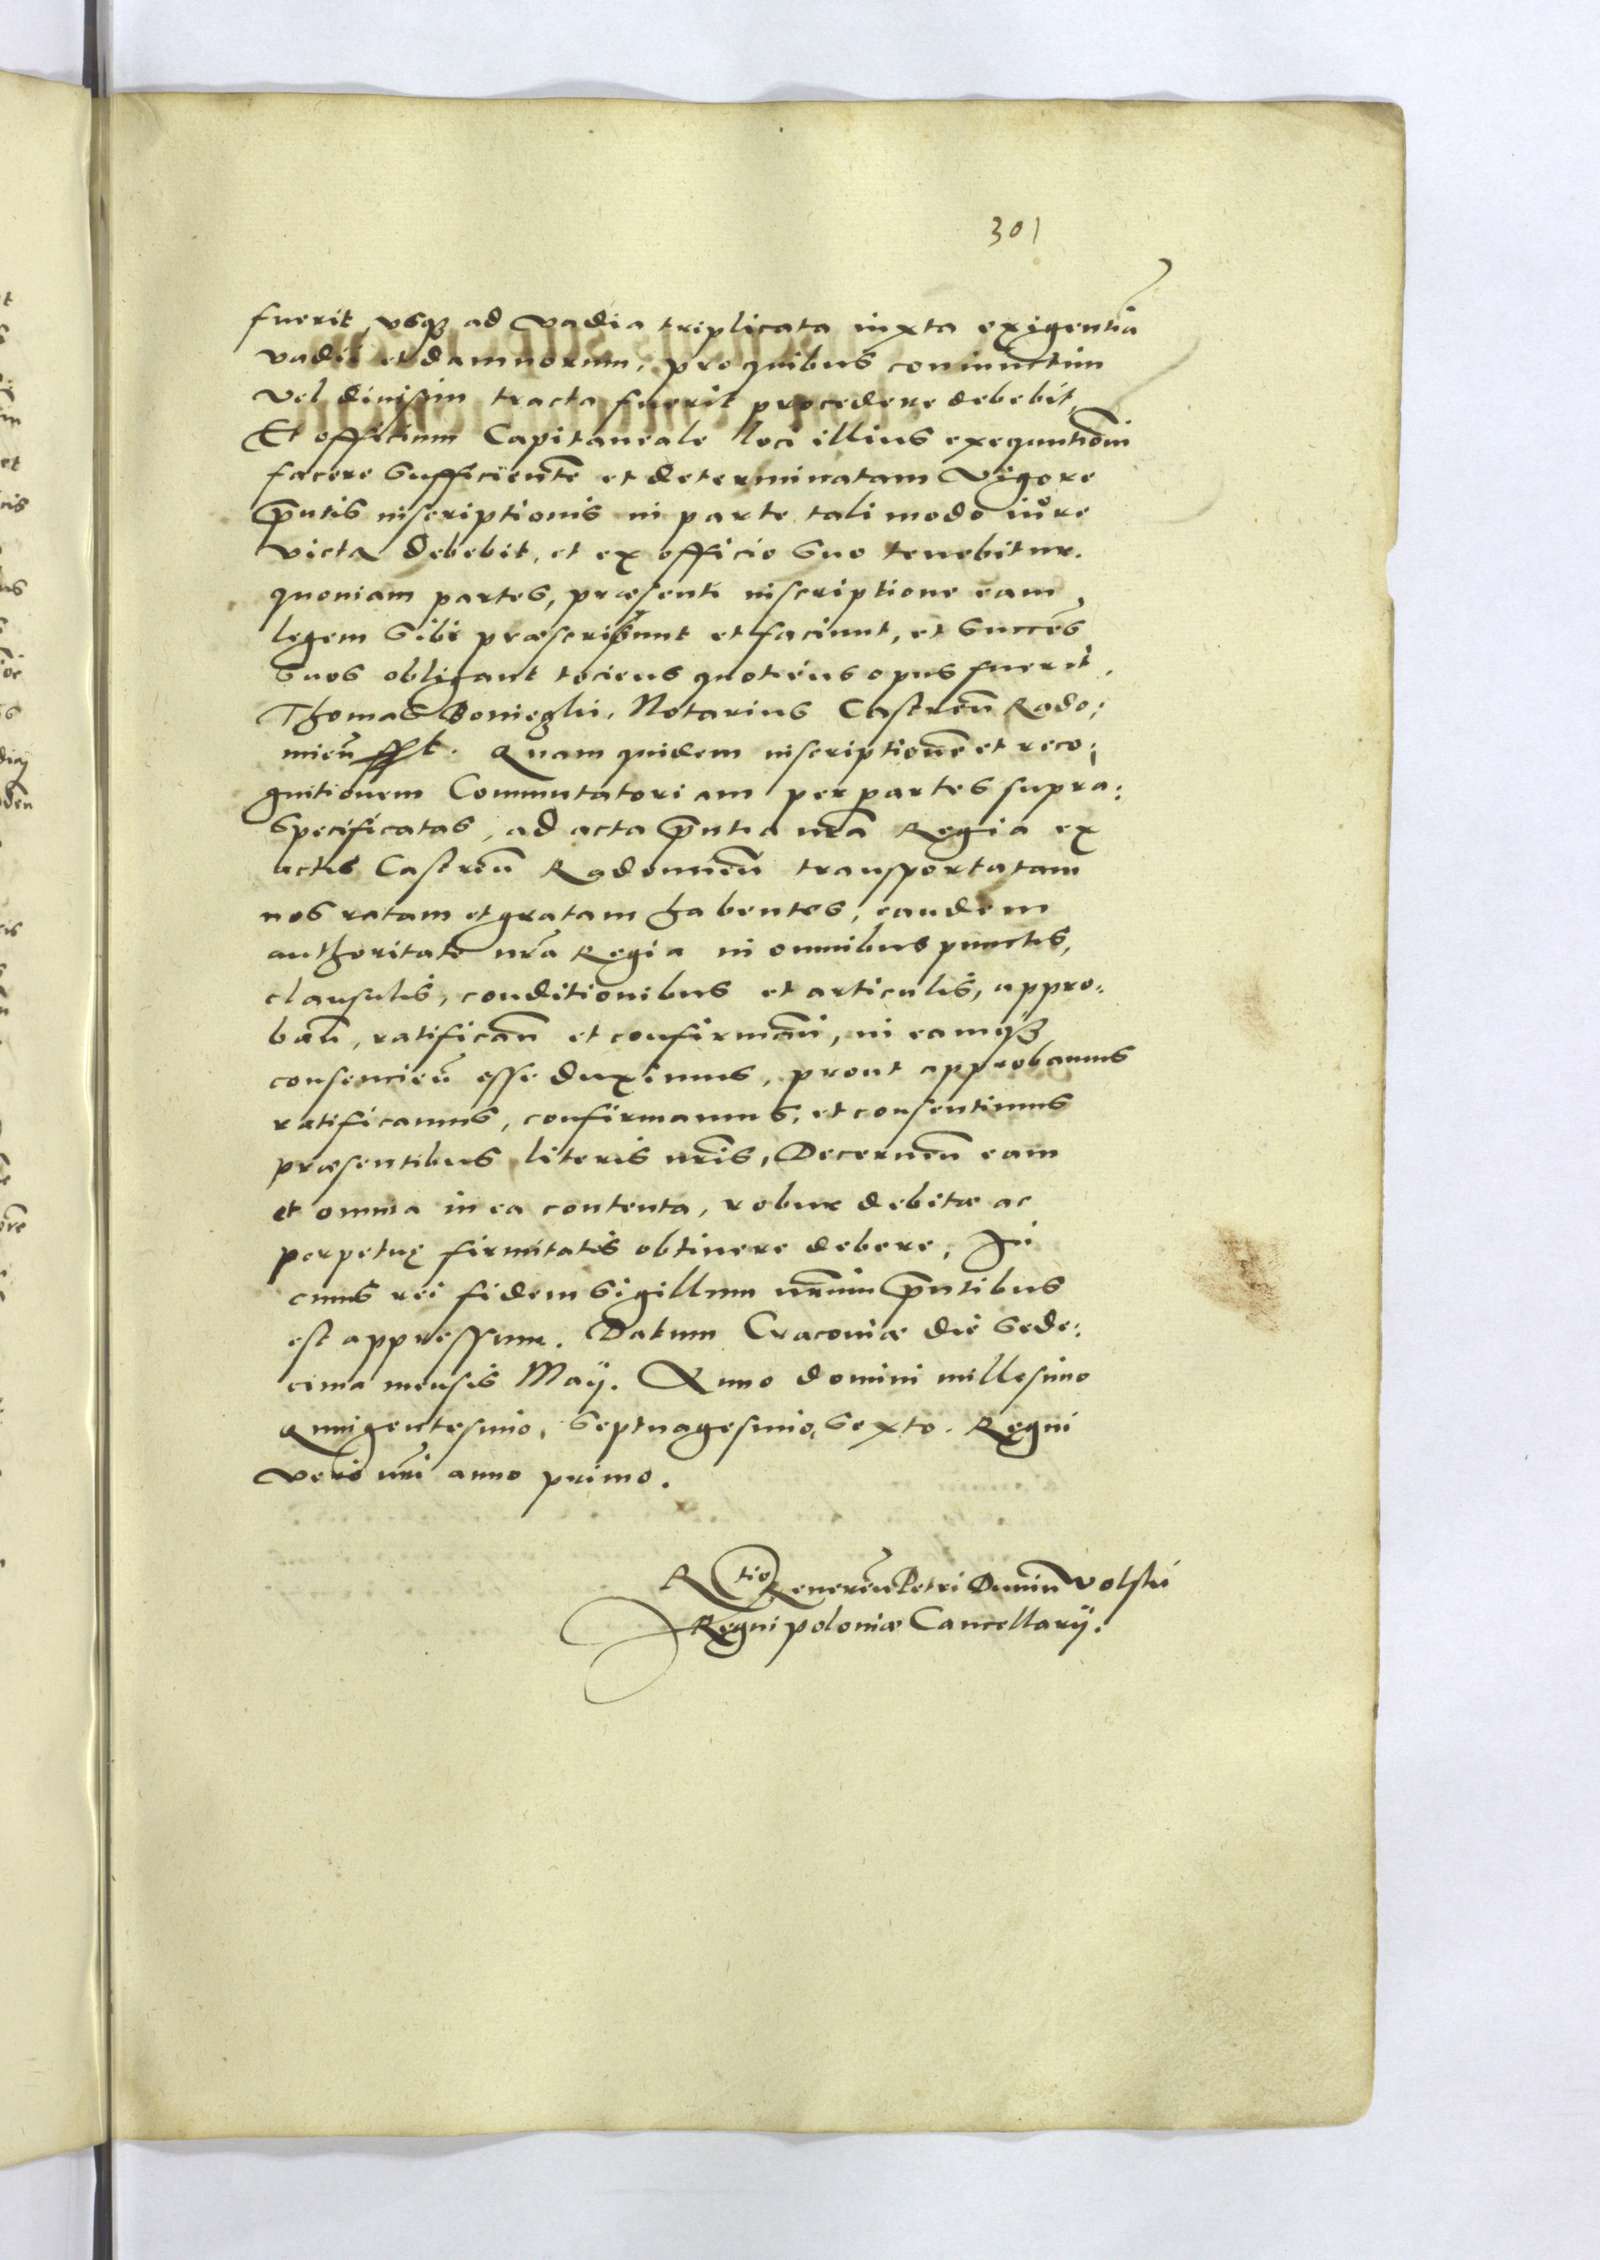 301
fuerit, vsq ad vadia triplicata iuxta exigentiã
vadii et damnorum, pro quibus coniunctim
vel diuisim tracta fuerit procedere debebit,
Et officium Capitaneale loci illius exequutiõni
facere sufficientẽ et determinatam vigore
pñtis inscriptionis in parte tali modo iure
victa debebit, et ex officio suo tenebitur.
quoniam partes, præsenti inscriptione eam
legem sibi præscribunt et faciunt, et succẽs
suos obligant tociens quotiens opus fuerit.
Thomas Notarius Castreñ Rado:
mieñ Quam quidem inscriptionẽ et reco:
gnitionem Commutatoriam per partes supra:
specificatas, ad acta pñtia nrã Regia ex
actis Castreñ Radomieñ transportatam
nos ratam et gratam habentes, eandem
authoritate nrã Regia in omnibus punctis,
clausulis, conditionibus et articulis, appro:
bañ, ratificañ et confirmañ, in eamqz
consencieñ esse duximus, prout approbamus
ratificamus, confirmamus, et consentimus
præsentibus literis nrĩs, Decerneñ eam
et omnia in ea contenta, robur debitæ ac
perpetuę firmitatis obtinere debere, In
cuius rei fidem sigillum nrũm pñtibus
est appressum. Datum Cracouiæ die sede:
cima mensis Maÿ. Anno domini millesimo
quingentesimo, septuagesimo, sexto. Regni
vero nrĩ anno primo.
Rtio Reuereñ Petri Duniñ Volski
Regni poloniæ Cancellarÿ.